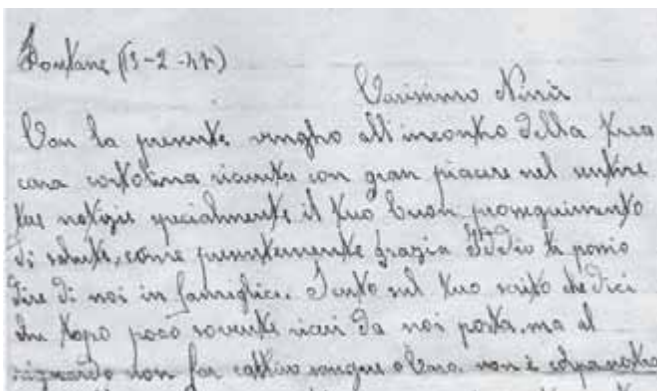 Fontane (13-2-42)
Carissimo Nini
Con la presente vengho all'incontro della tua
cara cartolina ricevuta con gran piacere nel sentire
tue notizie specialmente il tuo buon proseguimento
di salute, come presentemente grazia Iddio ti posso
dire di noi in famiglia. Sento sul tuo scrito che dici
che topo poco sovente ricevi da noi posta, ma al
riguardo non far cattivo sangue o Nini non è colpa nostra